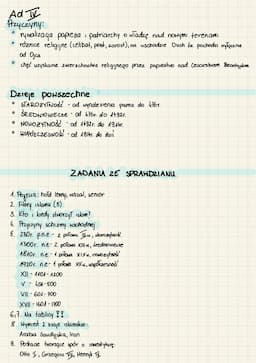 Ad IV
Przyczyny:
* rywalizacja papieża i patriarchy o władzę nad nowymi terenami
* różnice religijne (celibat, post, zarost), na wschodzie Duch Św. pochodzi wyłącznie
od Ojca
* chęć uzyskania zwierzchnictwa religijnego przez papiestwo nad Cesarstwem Bizantyjskim
Dzieje powszechne
* STAROŻYTNOŚĆ - od wynalezienia pisma do 476r.
* ŚREDNIOWIECZE - od 476r. do 1492r.
* NOWOŻYTNOŚĆ - od 1492r. do 1814r.
* WSPÓŁCZESNOŚĆ - od 1814r. do dziś
ZADANIA ZE SPRAWDZIANU
1. Pojęcia: hołd lenny, wasal, senior
2. Filary islamu (5)
3. Kto i kiedy stworzył islam?
4. Przyczyny schizmy wschodniej
XII - 1101 - 1200
V - 401 - 500
VII - 601 - 700
XVII - 1601 - 1700
6,7. Na tablicy !!
8. Wymień 2 kraje islamskie:
Arabia Saudyjska, Iran
9. Postacie tworzące spór o inwestyturę:
Otto I, Grzegorz VII, Henryk IV